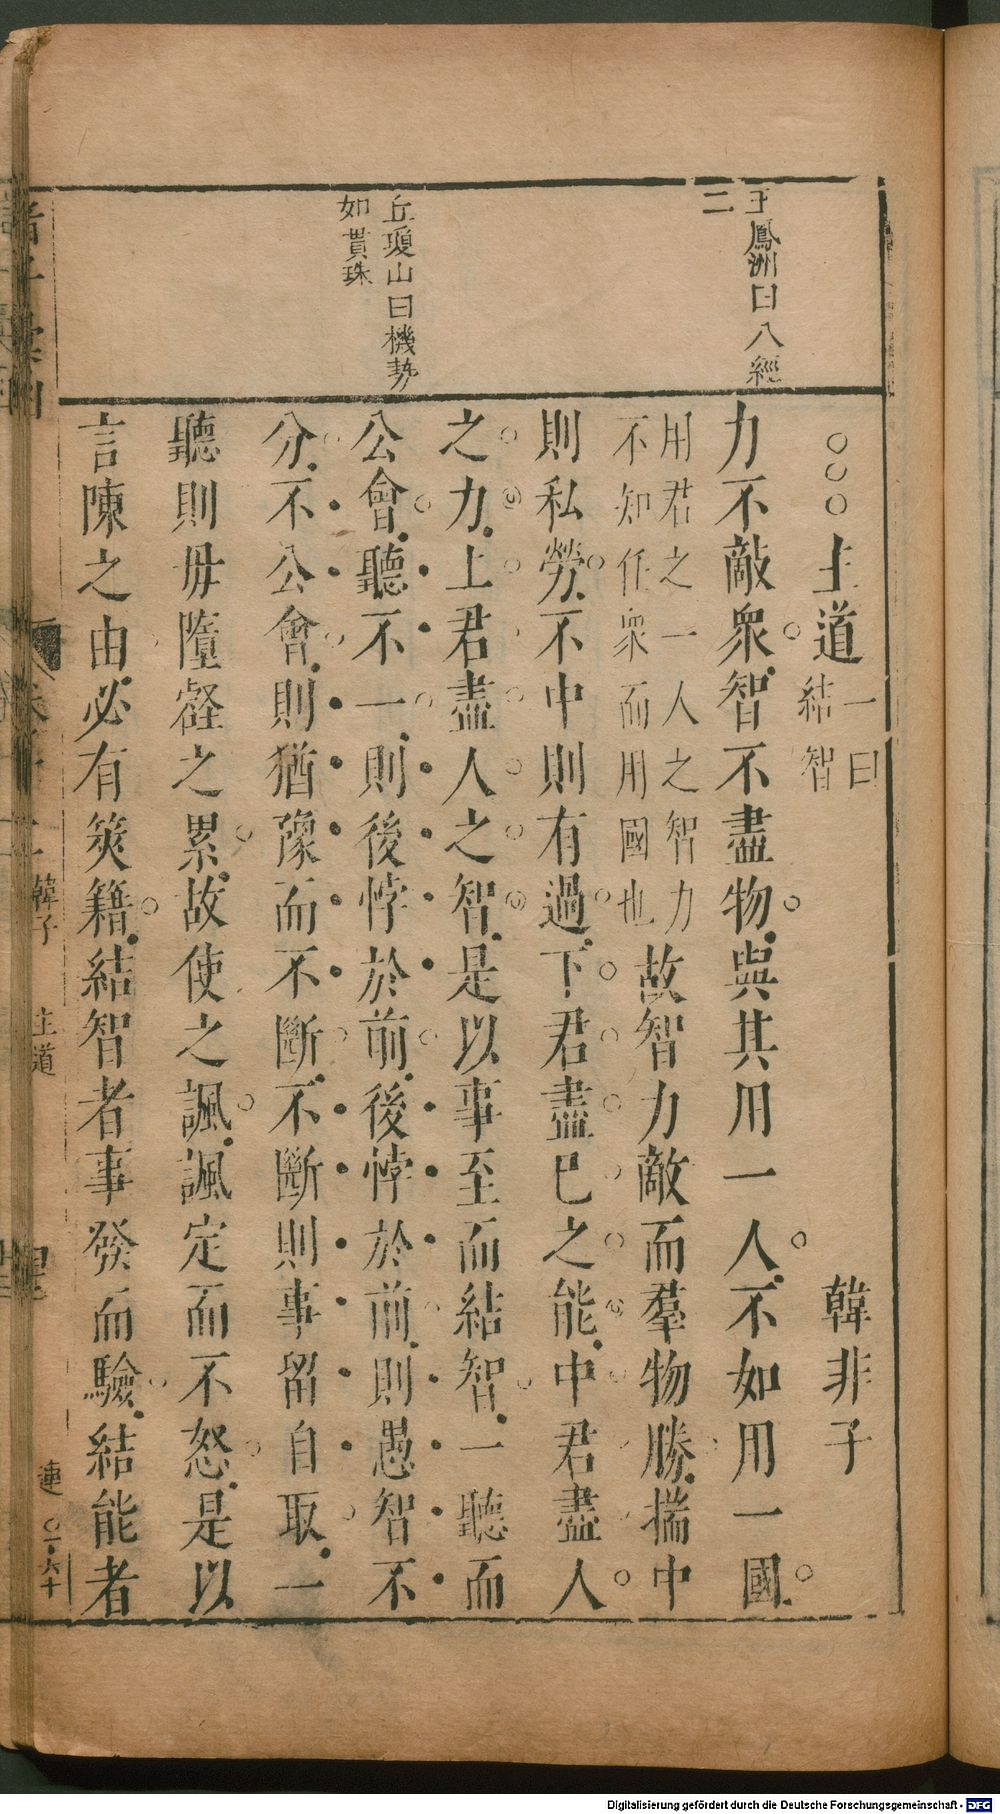 王鳳洲曰八經
二
丘瓊山曰機勢
如貫珠
○○○主道
一曰
結智
韓非子
力不敵衆智不盡物與其用一人不如用一國
用君之一人之智力
不知任衆而用國也
故智力敵而羣物勝揣中
則私勞不中則有過下君盡己之能中君盡人
之力上君盡人之智是以事至而結智一聽而
公會聽不一則後悖於前後悖於前則愚智不
分不公會則猶豫而不斷不斷則事留自取一
聽則毋墮壑之累故使之諷諷定而不怒是以
言陳之由必有筴籍結智者事發而驗結能者
韓子
主道
Digitalisierung gefördert durch die Deutsche Forschungsgemeinschaft - DFG